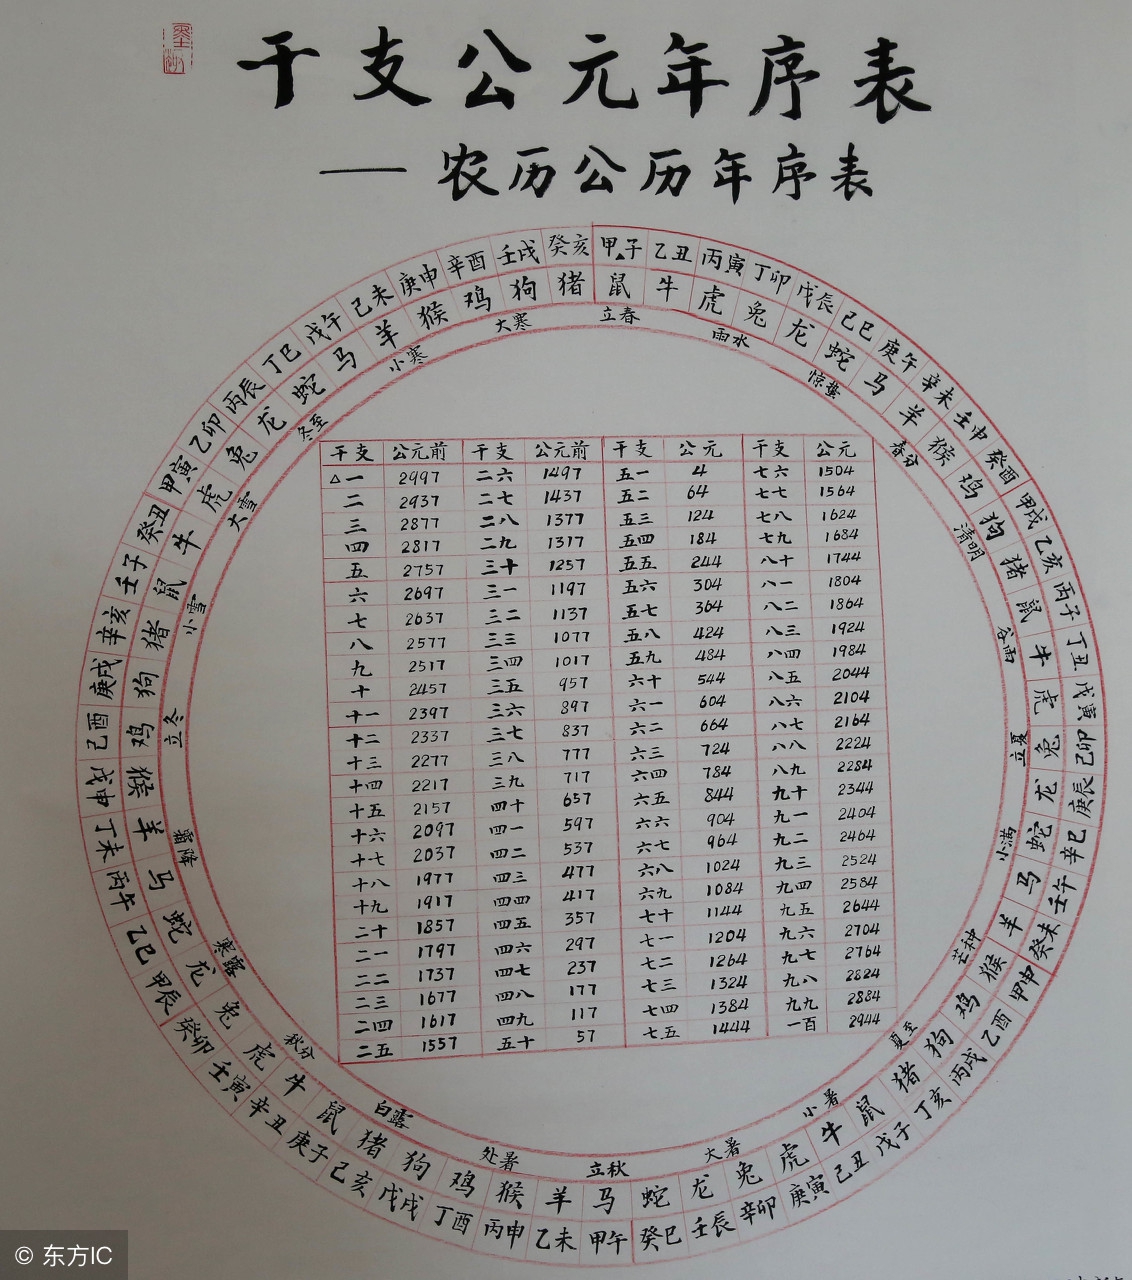 干支公元年序表
——农历公历年序表
甲子 乙丑 丙寅 丁卯 戊辰 己巳 庚午 辛未 壬申 癸酉 甲戌 乙亥 丙子 丁丑 戊寅 己卯 庚辰 辛巳 壬午 癸未 甲申 乙酉 丙戌 丁亥 戊子 己丑 庚寅 辛卯 壬辰 癸巳 甲午 乙未 丙申 丁酉 戊戌 己亥 庚子 辛丑 壬寅 癸卯 甲辰 乙巳 丙午 丁未 戊申 己酉 庚戌 辛亥 壬子 癸丑 甲寅 乙卯 丙辰 丁巳 戊午 己未 庚申 辛酉 壬戌 癸亥
鼠 牛 虎 兔 龙 蛇 马 羊 猴 鸡 狗 猪 鼠 牛 虎 兔 龙 蛇 马 羊 猴 鸡 狗 猪 鼠 牛 虎 兔 龙 蛇 马 羊 猴 鸡 狗 猪 鼠 牛 虎 兔 龙 蛇 马 羊 猴 鸡 狗 猪 鼠 牛 虎 兔 龙 蛇 马 羊 猴 鸡 狗 猪
立春 雨水 惊蛰 春分 清明 谷雨 立夏 小满 芒种 夏至 小暑 大暑 立秋 处暑 白露 秋分 寒露 霜降 立冬 小雪 大雪 冬至 小寒 大寒
干支 公元前 干支 公元前 干支 公元 干支 公元
△一 2997 二六 1497 五一 4 七六 1504
二 2937 二七 1437 五二 64 七七 1564
三 2877 二八 1377 五三 124 七八 1624
四 2817 二九 1317 五四 184 七九 1684
五 2757 三十 1257 五五 244 八十 1744
六 2697 三一 1197 五六 304 八一 1804
七 2637 三二 1137 五七 364 八二 1864
八 2577 三三 1077 五八 424 八三 1924
九 2517 三四 1017 五九 484 八四 1984
十 2457 三五 957 六十 544 八五 2044
十一 2397 三六 897 六一 604 八六 2104
十二 2337 三七 837 六二 664 八七 2164
十三 2277 三八 777 六三 724 八八 2224
十四 2217 三九 717 六四 784 八九 2284
十五 2157 四十 657 六五 844 九十 2344
十六 2097 四一 597 六六 904 九一 2404
十七 2037 四二 537 六七 964 九二 2464
十八 1977 四三 477 六八 1024 九三 2524
十九 1917 四四 417 六九 1084 九四 2584
二十 1857 四五 357 七十 1144 九五 2644
二一 1797 四六 297 七一 1204 九六 2704
二二 1737 四七 237 七二 1264 九七 2764
二三 1677 四八 177 七三 1324 九八 2824
二四 1617 四九 117 七四 1384 九九 2884
二五 1557 五十 57 七五 1444 一百 2944
© 东方IC